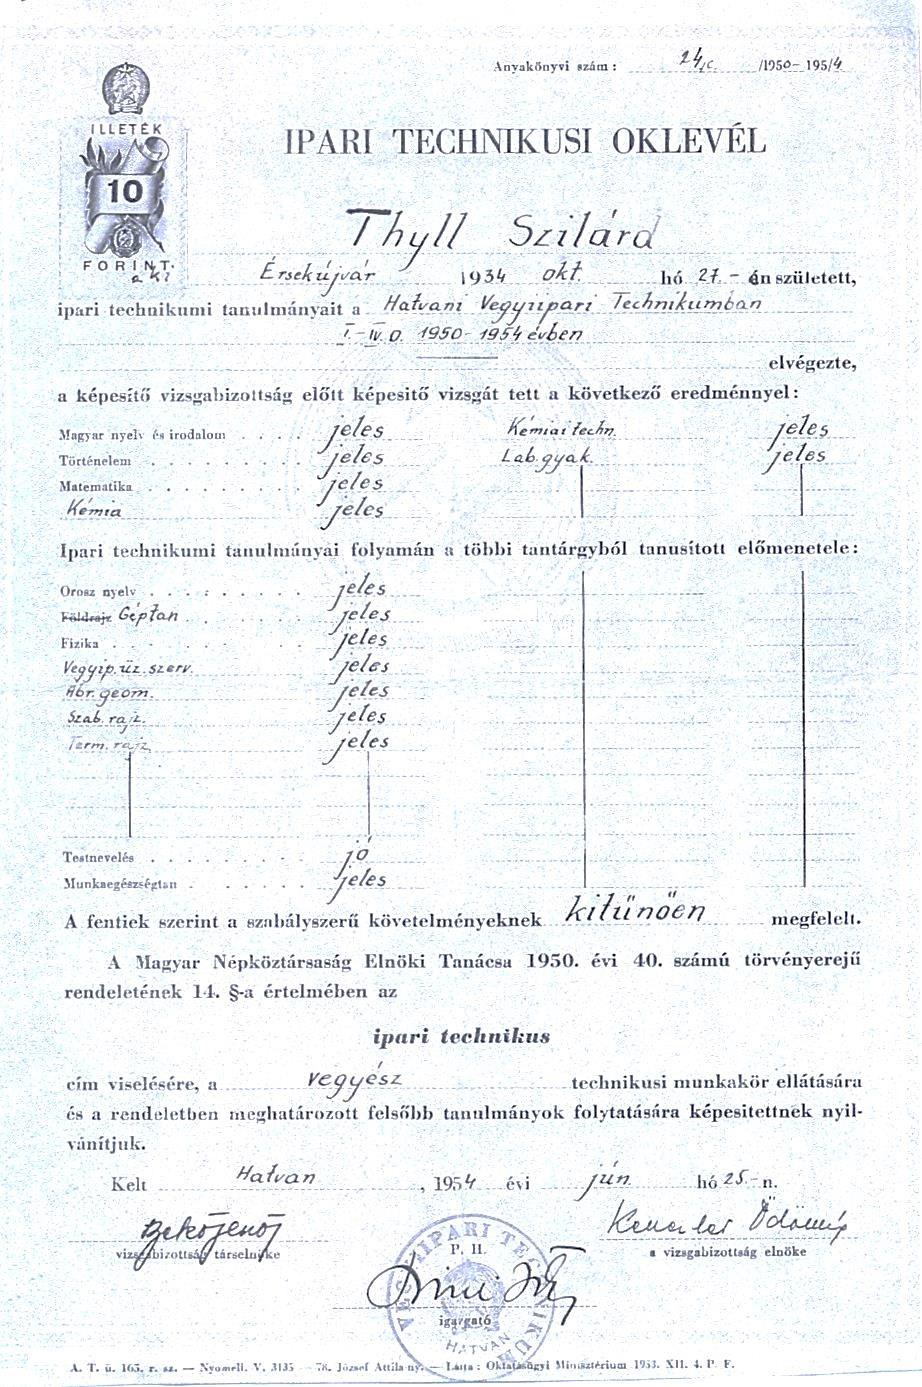 Anyakönyvi szám: 24/c. /1950-1954
ILLETÉK
10
FORINT
IPARI TECHNIKUSI OKLEVÉL
Thyll Szilárd
Érsekújvár 1934 okt. hó 27.- én született,
ipari technikumi tanulmányait a Hatvani Vegyiipari Technikumban
I.-IV. o. 1950-1954 évben
elvégezte,
a képesítő vizsgabizottság előtt képesitő vizsgát tett a következő eredménnyel:
Magyar nyelv és irodalom . . . . jeles Kémiai techn. jeles
Történelem . . . . . . . . . jeles Lab. gyak. jeles
Matematika . . . . . . . . . jeles
Kémia jeles
Ipari technikumi tanulmányai folyamán a többi tantárgyból tanusított előmenetele:
Orosz nyelv . . . . . . . . . jeles
Földrajz Géptan . . . . . . jeles
Fizika . . . . . . . . . . . jeles
Vegyip. üz. szerv. jeles
Ábr. geom. jeles
Szab. rajz. jeles
Term. rajz. jeles
Testnevelés . . . . . . . . . jó
Munkaegészségtan . . . . . . . jeles
A fentiek szerint a szabályszerű követelményeknek kitűnően megfelelt.
A Magyar Népköztársaság Elnöki Tanácsa 1950. évi 40. számú törvényerejű
rendeletének 14. §-a értelmében az
ipari technikus
cím viselésére, a vegyész technikusi munkakör ellátására
és a rendeletben meghatározott felsőbb tanulmányok folytatására képesitettnek nyil-
vánítjuk.
Kelt Hatvan, 1954 évi jún. hó 25.- n.
Bekő Jenő
vizsgabizottság társelnöke
a vizsgabizottság elnöke
P. H.
igazgató
VEGYIIPARI TECHNIKUM
HATVAN
A. T. ü. 163. r. sz. — Nyomell. V. 3135 — 78. József Attila ny. — Látta: Oktatásügyi Minisztérium 1953. XII. 4. P. F.